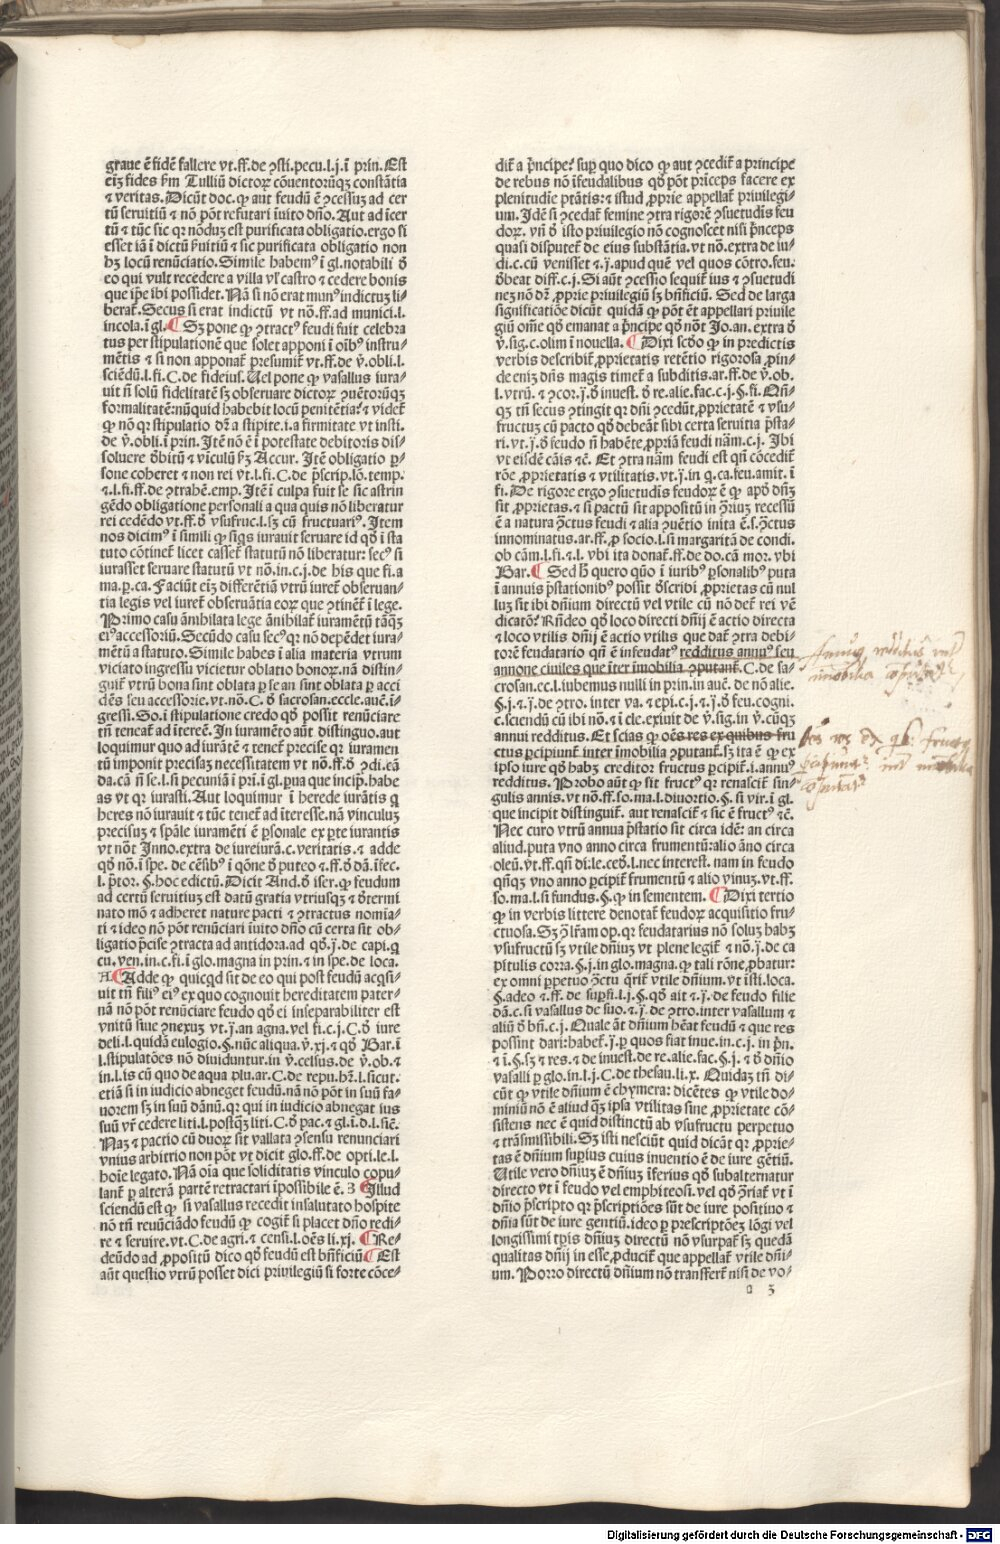 graue ē fidē fallere vt.ff.de ꝯsti.pecu.l.j.ī prin.Est
eiꝫ fides ẜm Tulliū dictoꝝ cōuentorūqꝫ constātia
⁊ veritas.Dicūt doc.ꝙ aut feudū ē ꝯcessuꝫ ad cer
tū seruitiū ⁊ nō pōt refutari īuito dño.Aut ad īcer
tū ⁊ tūc sic qꝛ nōduꝫ est purificata obligatio.ergo si
esset iā ī dictū ẜuitiū ⁊ sic purificata obligatio non
hꝫ locū renūciatio.Simile habemꝰ ī gl.notabili ð
eo qui vult recedere a villa vl̓ castro ⁊ cedere bonis
que ip̄e ibi possidet.Nā si nō erat munꝰ indictuꝫ li⸗
berat᷑.Secus si erat indictū vt nō.ff.ad munici.l.
incola.ī gl.¶ Sꝫ pone ꝙ ꝯtractꝰ feudi fuit celebra
tus per stipulationē que solet apponi ī oībꝰ instru⸗
mētis ⁊ si non apponat᷑ presumit᷑ vt.ff.de ꝟ.obli.l.
sciēdū.l.fi.C.de fideius.Uel pone ꝙ vasallus iura⸗
uit ñ solū fidelitatē sꝫ obseruare dictoꝝ ꝯuētorūqꝫ
formalitatē:nūquid habebit locū penitētia? ⁊ videt᷑
ꝙ nō qꝛ stipulatio dꝛ̄ a stipite.i.a firmitate vt insti.
de ꝟ.obli.ī prin.Itē nō ē ī potestate debitoris dis⸗
soluere ðbitū ⁊ vīculū ẜꝫ Accur.Itē obligatio ꝑ⸗
sone coheret ⁊ non rei vt.l.fi.C.de p̄scrip.lō.temp.
⁊.l.fi.ff.de ꝯtrahē.emp.Itē ī culpa fuit se sic astrin
gēdo obligatione personali a qua quis nō liberatur
rei cedēdo vt.ff.ð vsufruc.l.sꝫ cū fructuariꝰ.Item
nos dicimꝰ ī simili ꝙ siqꝰs iurauit seruare id qð ī sta
tuto cōtinet᷑ licet cassēt statutū nō liberatur: secꝰ si
iurasset seruare statutū vt nō.in.c.j.de his que fi.a
ma.ꝑ.ca.Faciūt eiꝫ differētiā vtrū iuret᷑ obseruan⸗
tia legis vel iuret᷑ obseruātia eoꝝ que ꝯtinēt᷑ ī lege.
Primo casu ānihilata lege ānihilat᷑ iuramētū tāqꝫ
eiꝰ accessoriū.Secūdo casu secꝰ qꝛ nō depēdet iura⸗
mētū a statuto.Simile habes ī alia materia vtrum
viciato ingressu vicietur oblatio honoꝝ.nā distin⸗
guit᷑ vtrū bona sint oblata ꝑ se an sint oblata ꝑ acci
dēs seu accessorie.vt nō.C.ð sacrosan.eccle.auē.i⸗
gressi.So.ī stipulatione credo qð possit renūciare
tñ teneat᷑ ad īterēē.In iuramēto aūt distinguo.aut
loquimur quo ad iurātē ⁊ tenet᷑ precise qꝛ iuramen
tū imponit precisaꝫ necessitatem vt nō.ff.ð ꝯdi.cā
da.cā ñ se.l.si pecuniā ī pri.ī gl.ꝑua que incip̄.habe
as vt qꝛ iurasti.Aut loquimur ī herede iurātis q
heres nō iurauit ⁊ tūc tenet᷑ ad īteresse.nā vinculuꝫ
precisuꝫ ⁊ sp̄ale iuramēti ē ꝑsonale ex ꝑte iurantis
vt nōt Inno.extra de iureiurā.c.veritatis.⁊ adde
qð nō.ī spe.de cēsibꝰ ī qōne ð puteo ⁊.ff.ð dā.īfec.
l.p̄tor.§.hoc edictū.Dicit And.ð iser.ꝙ feudum
ad certū seruitiuꝫ est datū gratia vtriusqꝫ ⁊ ðtermi
nato mō ⁊ adheret nature pacti ⁊ ꝯtractus nomia⸗
ti ⁊ ideo nō pōt renūciari īuito dño cū certa sit ob⸗
ligatio p̄cise ꝯtracta ad antidora.ad qð.ī.de capi.q
cu.ven.in.c.fi.ī glo.magna in prin.⁊ in spe.de loca.
¶ Adde ꝙ quicqd sit de eo qui post feudū acqsi⸗
uit tñ filiꝰ eiꝰ ex quo cognouit hereditatem pater⸗
nā nō pōt renūciare feudo qð ei inseparabiliter est
vnitū siue ꝯnexuꝫ vt.j̄.an agna.vel fi.c.j.C.ð iure
deli.l.quidā eulogio.§.nūc aliqua.ꝟ.xj.⁊ qð Bar.ī
l.stipulatōes nō diuiduntur.in ꝟ.celsus.de ꝟ.ob.⁊
in.l.is cū quo de aqua plu.ar.C.de repu.hꝛ̄.l.sicut.
etiā si in iudicio abneget feudū.nā nō pōt in suū fa⸗
uorem sꝫ in suū dānū.qꝛ qui in iudicio abnegat ius
suū vꝛ̄ cedere liti.l.postqꝫ liti.C.ð pac.⁊ gl.ī.d.l.siē.
Naꝫ ⁊ pactio cū duoꝝ sit vallata ꝯsensu renunciari
vnius arbitrio non pōt vt dicit glo.ff.de opti.le.l.
hoīe legato.Nā oīa que soliditatis vinculo copu⸗
lant᷑ ꝑ alterā partē retractari īpossibile ē. ¶Illud
sciendū est ꝙ si vasallus recedit insalutato hospite
nō tñ renūciādo feudū ꝙ cogit᷑ si placet dño redi⸗
re ⁊ seruire.vt.C.de agri.⁊ censi.l.oēs li.xj. ¶Re⸗
deūdo ad ꝓpositū dico qð feudū est bñficiū¶ Est
aūt questio vtrū posset dici priuilegiū si forte cōce⸗
dit᷑ a p̄ncipe? suꝑ quo dico ꝙ aut ꝯcedit᷑ a principe
de rebus nō īfeudalibus qð pōt p̄iceps facere ex
plenitudīe ptātis:⁊ istud ꝓprie appellat᷑ priuilegi⸗
um.Idē si ꝯcedat᷑ femine ꝯtra rigorē ꝯsuetudīs feu
doꝝ. vñ ð isto priuilegio nō cognoscet nisi p̄nceps
quasi disputet᷑ de eius substātia.vt nō.extra de iu⸗
di.c.cū venisset ⁊.j̄.apud quē vel quos cōtro.feu.
ðbeat diff.c.j.Si aūt ꝯcessio sequit᷑ ius ⁊ ꝯsuetudi
neꝫ nō dꝛ̄ ꝓprie priuilegiū sꝫ bñficiū. Sed de larga
significatiōe dicūt quidā ꝙ pōt ēt appellari priuile
giū om̄e qð emanat a p̄ncipe qð nōt Jo.an.extra ð
ꝟ.sig.c.olim ī nouella. ¶Dixi scdo ꝙ in predictis
verbis describit᷑ ꝓprietatis retētio rigorosa ꝓin⸗
de eniꝫ dñs magis timet᷑ a subditis.ar.ff.de ꝟ.ob.
l.vtrū.⁊ ꝯcor.j̄.ð inuest.ð re.alie.fac.c.j.§.fi.Qñ⸗
qꝫ tñ secus ꝯtingit qꝛ dñi ꝯcedūt ꝓprietatē ⁊ vsu⸗
fructuꝫ cū pacto qð debeāt sibi certa seruitia p̄sta⸗
ri.vt.j̄.ð feudo ñ habēte ꝓpriā feudi nām.c.j. Ibi
vt eisdē cāis ⁊c̄. Et ꝯtra nām feudi est qñ cōcedit᷑
rōe ꝓprietatis ⁊ vtilitatis.vt.j̄.in q.ca.feu.amit.ī
fi.De rigore ergo ꝯsuetudīs feudoꝝ ē ꝙ apð dñꝫ
sit ꝓprietas.⁊ si pactū sit appositū in ꝯ̄riuꝫ recessū
ē a natura ꝯ̄ctus feudi ⁊ alia ꝯuētio inita ē.s.ꝯ̄ctus
innominatus.ar.ff.ꝓ socio.l.si margaritā de condi.
ob cām.l.fi.⁊.l. vbi ita donat᷑.ff.de do.cā mor. vbi
Bar. ¶ Sed hī quero qūo ī iuribꝰ ꝑsonalibꝰ puta
ī annuis p̄stationibꝰ possit ðscribi ꝓprietas cū nul
luꝫ sit ibi dñium directū vel vtile cū nō det᷑ rei vē
dicatō? Rñdeo qð loco directi dñij ē actio directa
⁊ loco vtilis dñij ē actio vtilis que dat᷑ ꝯtra debi⸗
torē feudatario qñ ē infeudatꝰ redditus annuꝰ seu
annone ciuiles que īter īmobilia ꝯputant᷑.C.de sa⸗
crosan.ec.l.iubemus nulli in prin.in auē.de nō alie.
§.j.⁊.j̄.de ꝯtro.inter va.⁊ epi.c.j.⁊.j̄.ð feu.cogni.
c.sciendū cū ibi nō.⁊ ī cle.exiuit de ꝟ.sig.in ꝟ.cūqꝫ
annui redditus.Et scias ꝙ oēs res ex quibus fru
ctus ꝑcipiunt᷑ inter īmobilia ꝯputant᷑.sꝫ ita ē ꝙ ex
ipso iure qð habꝫ creditoꝛ fructus ꝑcipit᷑.i.annuꝰ
redditus.Probo aūt ꝙ sit fructꝰ qꝛ renascit᷑ sin⸗
gulis annis.vt nō.ff.so.ma.l.diuortio.§.si vir.ī gl.
que incipit distinguit᷑. aut renascit᷑ ⁊ sic ē fructꝰ ⁊c̄.
Nec curo vtrū annua p̄statio sit circa idē: an circa
aliud.puta vno anno circa frumentū:alio āno circa
oleū.vt.ff.qñ di:le.ceð.l.nec interest. nam in feudo
qñqꝫ vno anno ꝑcipit᷑ frumentū ⁊ alio vinuꝫ.vt.ff.
so.ma.l.si fundus.§.ꝙ in sementem. ¶Dixi tertio
ꝙ in verbis littere denotat᷑ feudoꝝ acquisitio fru⸗
ctuosa.Sꝫ ꝯ lr̄am op.qꝛ feudatarius nō soluꝫ habꝫ
vsufructū sꝫ vtile dñiuꝫ vt plene legit᷑ ⁊ nō.j̄.de ca
pitulis corra.§.j.in glo.magna.ꝙ tali rōne ꝓbatur:
ex omni ꝑpetuo ꝯ̄ctu q̄rit᷑ vtile dñium.vt īsti.loca.
§.adeo ⁊.ff.de suꝑfi.l.j.§.qð ait ⁊.j̄.de feudo filie
dā.c.si vasallus de suo.⁊.j̄.de ꝯtro.inter vasallum ⁊
aliū ð bñ.c.j.Quale āt dñium hēat feudū ⁊ que res
possint dari:habet᷑.j̄.ꝑ quos fiat inue.in.c.j.in p̄n.
⁊ ī.§.sꝫ ⁊ res.⁊ de inuest.de re.alie.fac.§.j.⁊ ð dñio
vasalli ꝑ glo.in.l.j.C.de thesau.li.x. Quidaꝫ tñ di⸗
cūt ꝙ vtile dñium ē chymera: dicētes ꝙ vtile do⸗
miniū nō ē aliud qꝫ ipsa vtilitas sine ꝓprietate cō⸗
sistens nec ē quid distinctū ab vsufructu perpetuo
⁊ trāsmissibili.Sꝫ isti nesciūt quid dicāt qꝛ ꝓprie⸗
tas ē dñium suꝑius cuius inuentio ē de iure gētiū.
Utile vero dñiuꝫ ē dñiuꝫ īferius qð subalternatur
directo vt ī feudo vel emphiteosi.vel qð ꝯ̄riat᷑ vt ī
dñio p̄scripto qꝛ p̄scriptiōes sūt de iure positiuo ⁊
dñia sūt de iure gentiū.ideo ꝑ prescriptōeꝫ lōgi vel
longissimi tꝑis dñiuꝫ directū nō vsurpat᷑ sꝫ quedā
qualitas dñij in esse ꝓducit᷑ que appellat᷑ vtile dñi⸗
um.Porro directū dñium nō transfert᷑ nisi de vo⸗
a 3